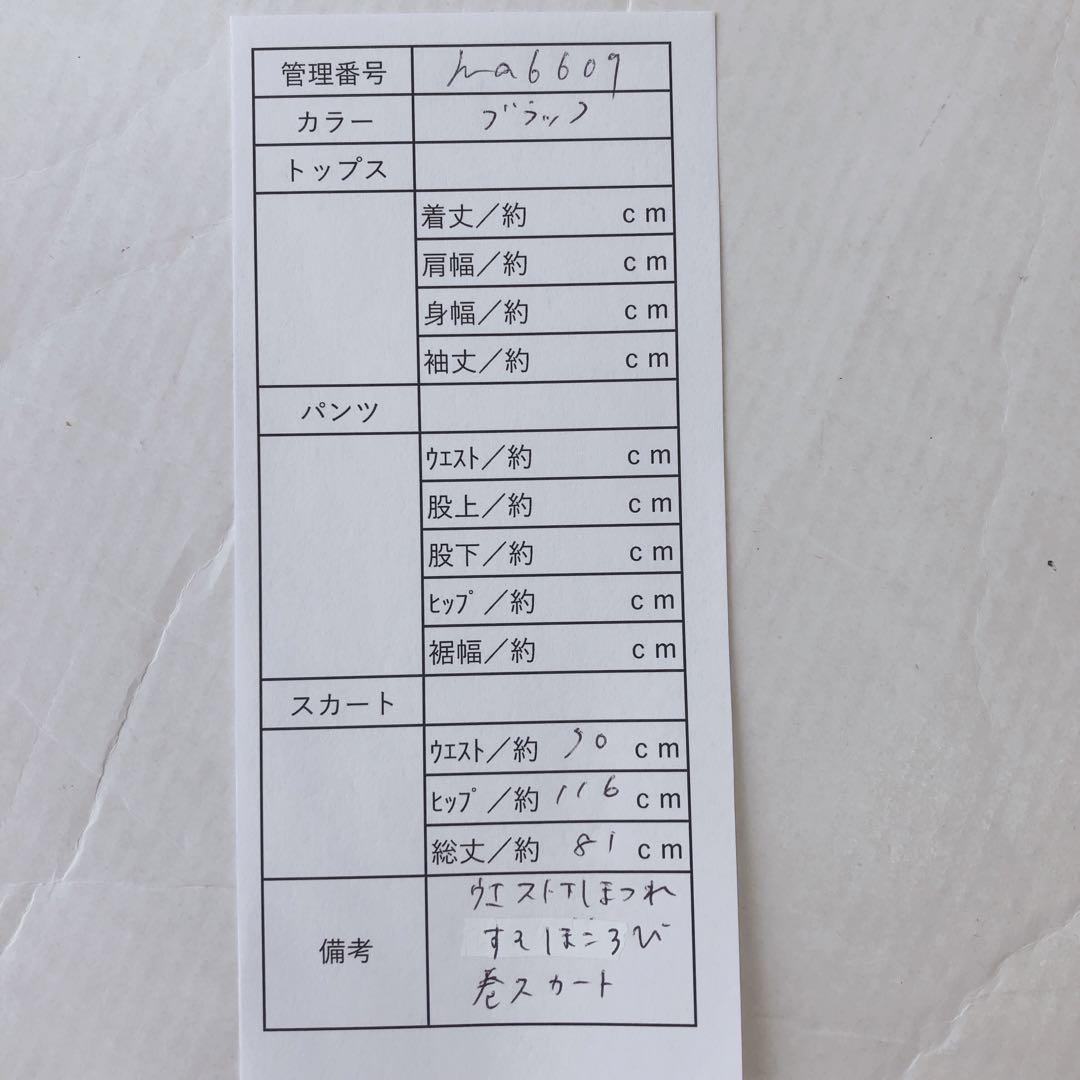 管理番号 ma6609
カラー ブラック
トップス
着丈／約 cm
肩幅／約 cm
身幅／約 cm
袖丈／約 cm
パンツ
ｳｴｽﾄ／約 cm
股上／約 cm
股下／約 cm
ﾋｯﾌﾟ／約 cm
裾幅／約 cm
スカート
ｳｴｽﾄ／約 90 cm
ﾋｯﾌﾟ／約 116 cm
総丈／約 81 cm
備考
ウエスト
すそほころび
巻スカート